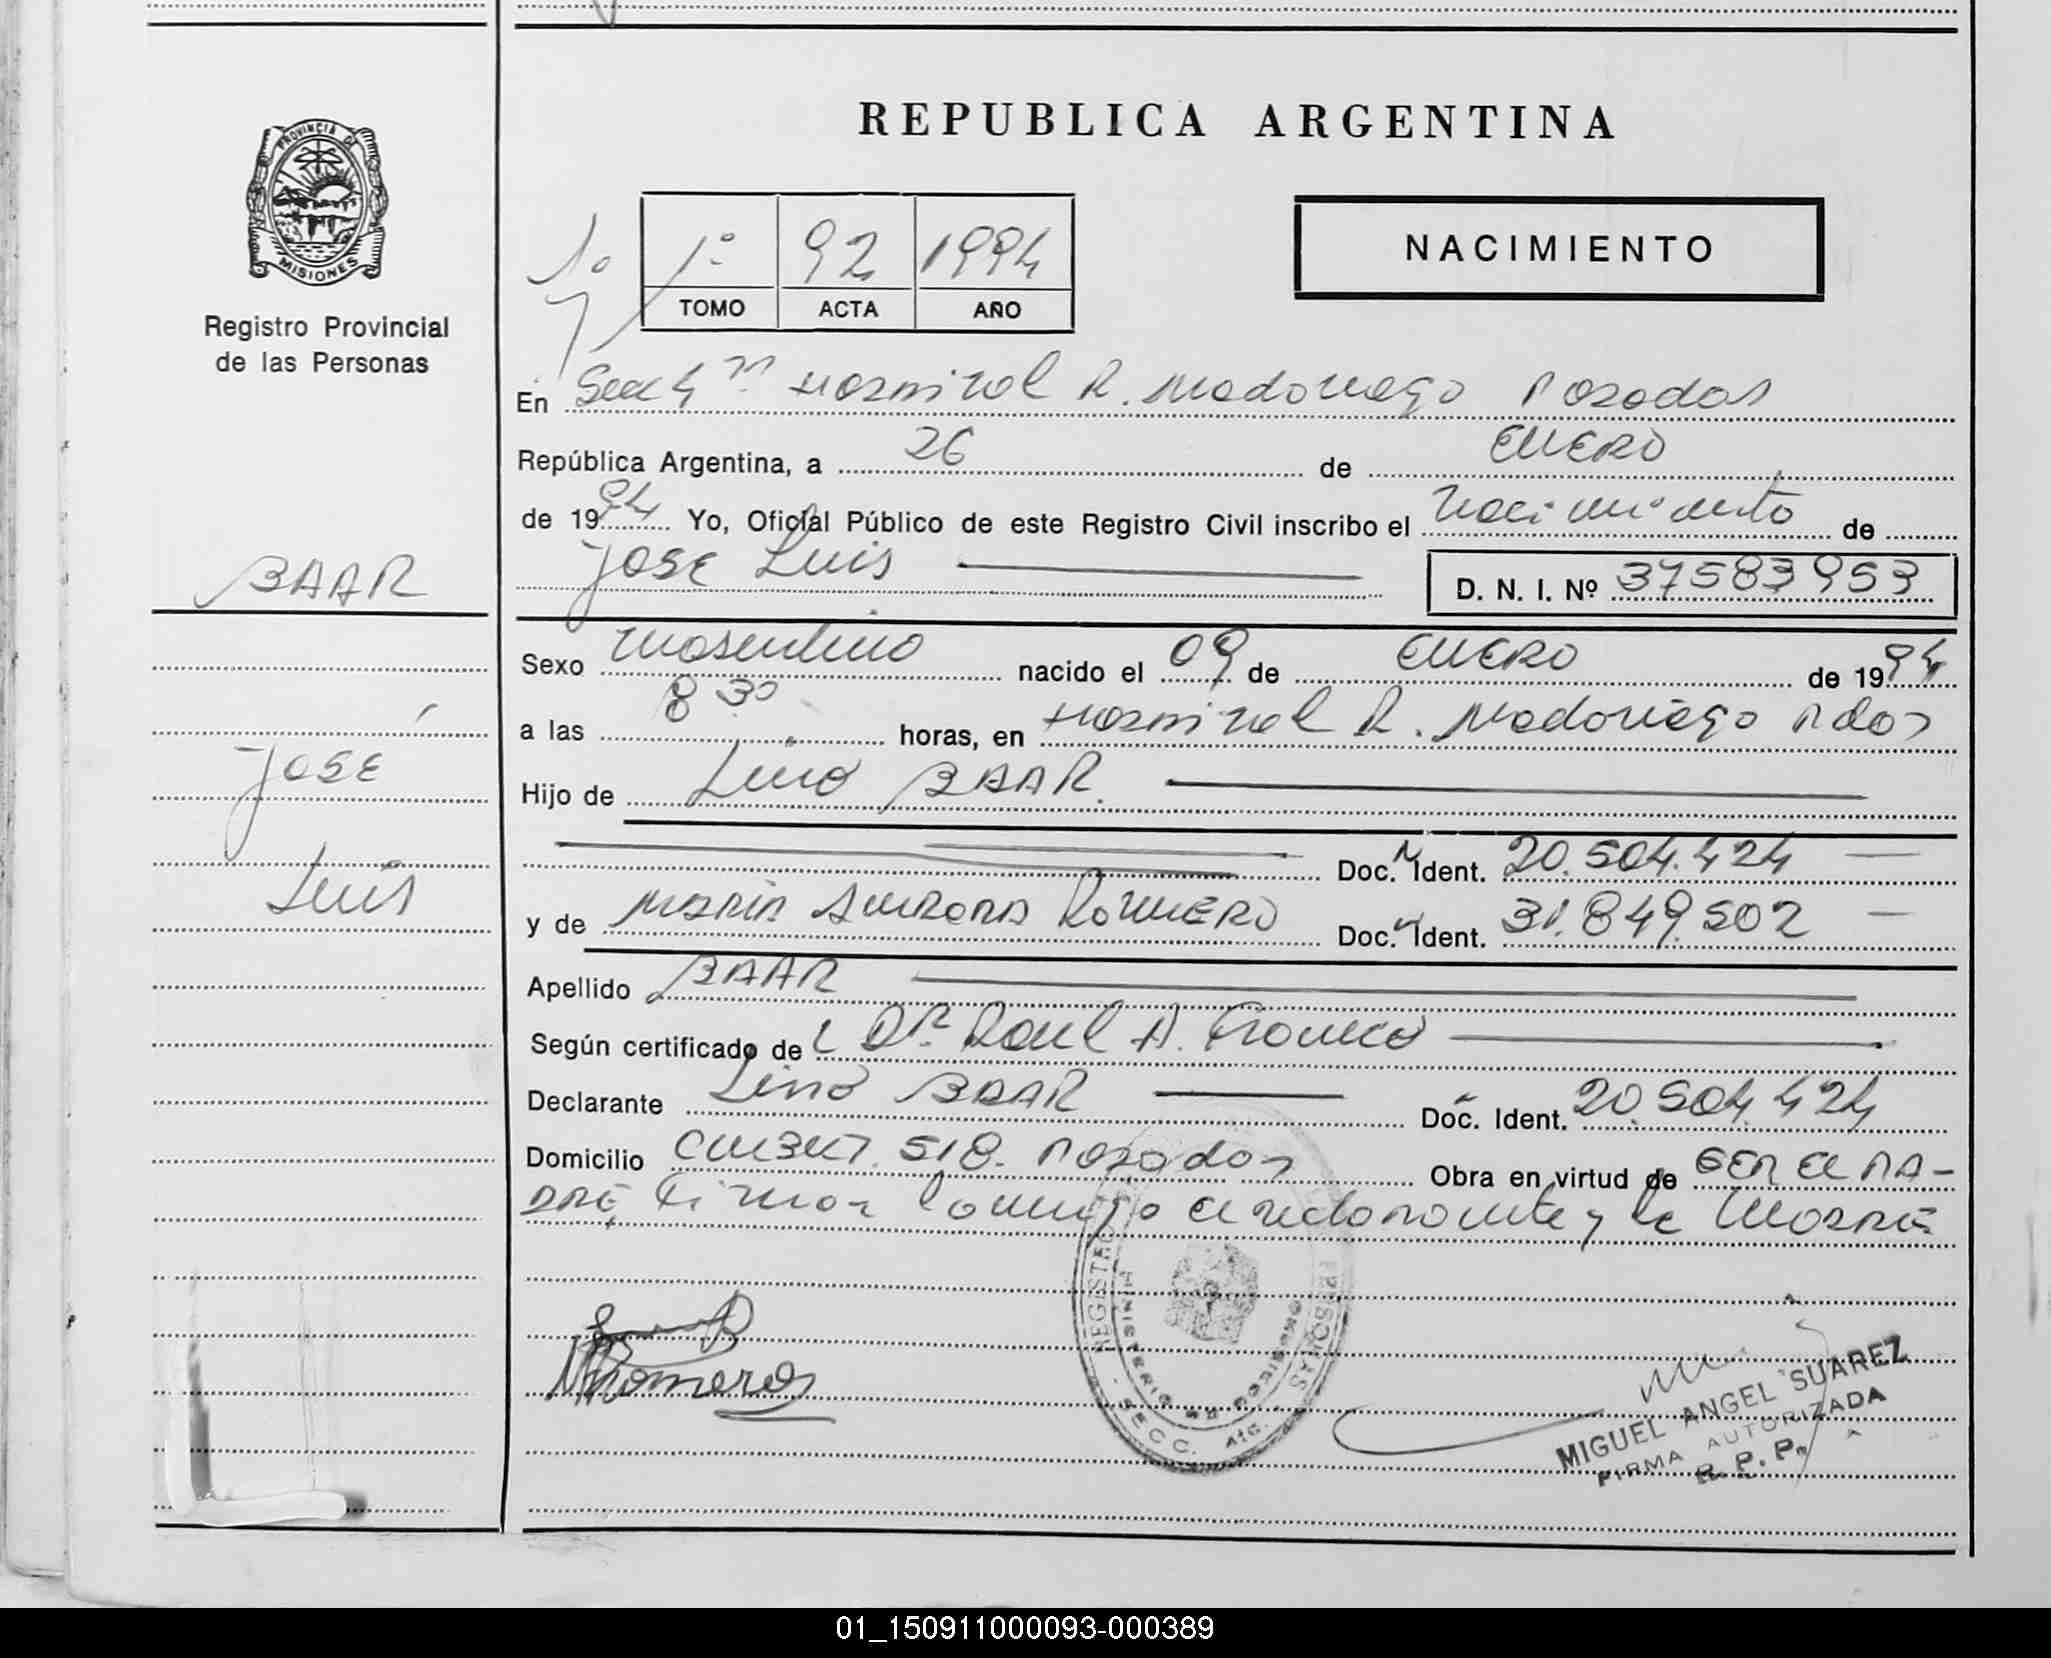 REPUBLICA ARGENTINA
PROVINCIA DE MISIONES
Registro Provincial
de las Personas
1º 92 1994
TOMO ACTA AÑO
NACIMIENTO
En Secc 4ta Hospital R. Madariaga Posadas
República Argentina, a 26 de ENERO
de 1994 Yo, Oficial Público de este Registro Civil inscribo el Nacimiento de
JOSE Luis D. N. I. Nº 37583953
BAAR
Sexo Masculino nacido el 09 de ENERO de 1994
a las 8 30 horas, en Hospital R. Madariaga Pdas
JOSÉ
Hijo de Lino BAAR.
Doc. N Ident. 20.504.424
Luis
y de MARIA AURORA ROMERO Doc. Ident. 31.849.502
Apellido BAAR
Según certificado de Dr. Raul A. Franco
Declarante Lino BAAR Doc. Ident. 20.504.424
Domicilio 518. Posadas Obra en virtud de SER EL PA-
DRE, Firman Conmigo el declarante y la MADRE
Romero
REGISTRO PERSONAS
MINISTERIO DE GOBIERNO
SECC.
MIGUEL ANGEL SUAREZ
FIRMA AUTORIZADA
R. P. P.
01_150911000093-000389